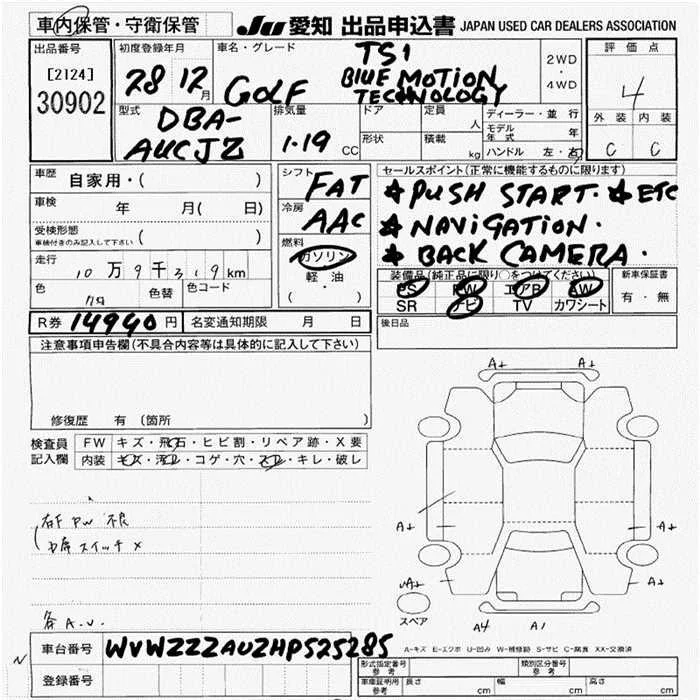 車内保管・守衛保管
JU 愛知 出品申込書 JAPAN USED CAR DEALERS ASSOCIATION
出品番号
[2124]
30902
初度登録年月
28 12月
車名・グレード
GOLF
TS1
BLUE MOTION
TECHNOLOGY
2WD
・
4WD
評価点
4
外装 内装
C C
型式
DBA-
AUCJZ
排気量
1.19 CC
ドア
形状
定員 人
積載 kg
ディーラー・並行
モデル年式 年
ハンドル 左・右
車歴 自家用・( )
車検 年 月( 日)
受検形態
車検付きのみ記入して下さい ( )
走行 10万9千319km
色 色替 色コード
シフト FAT
冷房 AAC
燃料 ガソリン
・
軽・油
( )
セールスポイント(正常に機能するものに限ります)
★PUSH START. ★ETC
★NAVIGATION.
★BACK CAMERA.
装備品(純正品に限り○をつけてください)
PS PW エアB AW
SR ナビ TV カワシート
新車保証書
有・無
R券 14940円 名変通知期限 月 日
後日品
注意事項申告欄(不具合内容等は具体的に記入して下さい)
修復歴 有 (箇所 )
検査員
記入欄
FW キズ・飛石・ヒビ割・リペア跡・X要
内装 キズ・汚レ・コゲ・穴・スレ・キレ・破レ
右F PW 不良
スイッチ X
A.U.
A+ A+
A+ A+
A+ A+
スペア
A4 A1
A-キズ E-エクボ U-凹ミ W-補修跡 S-サビ C-腐食 XX-交換済
車台番号 WVWZZZAUZHP525285
登録番号
型式指定番号
参考
類別区分番号
参考
車庫証明用
参考
長さ cm 幅 cm 高さ cm